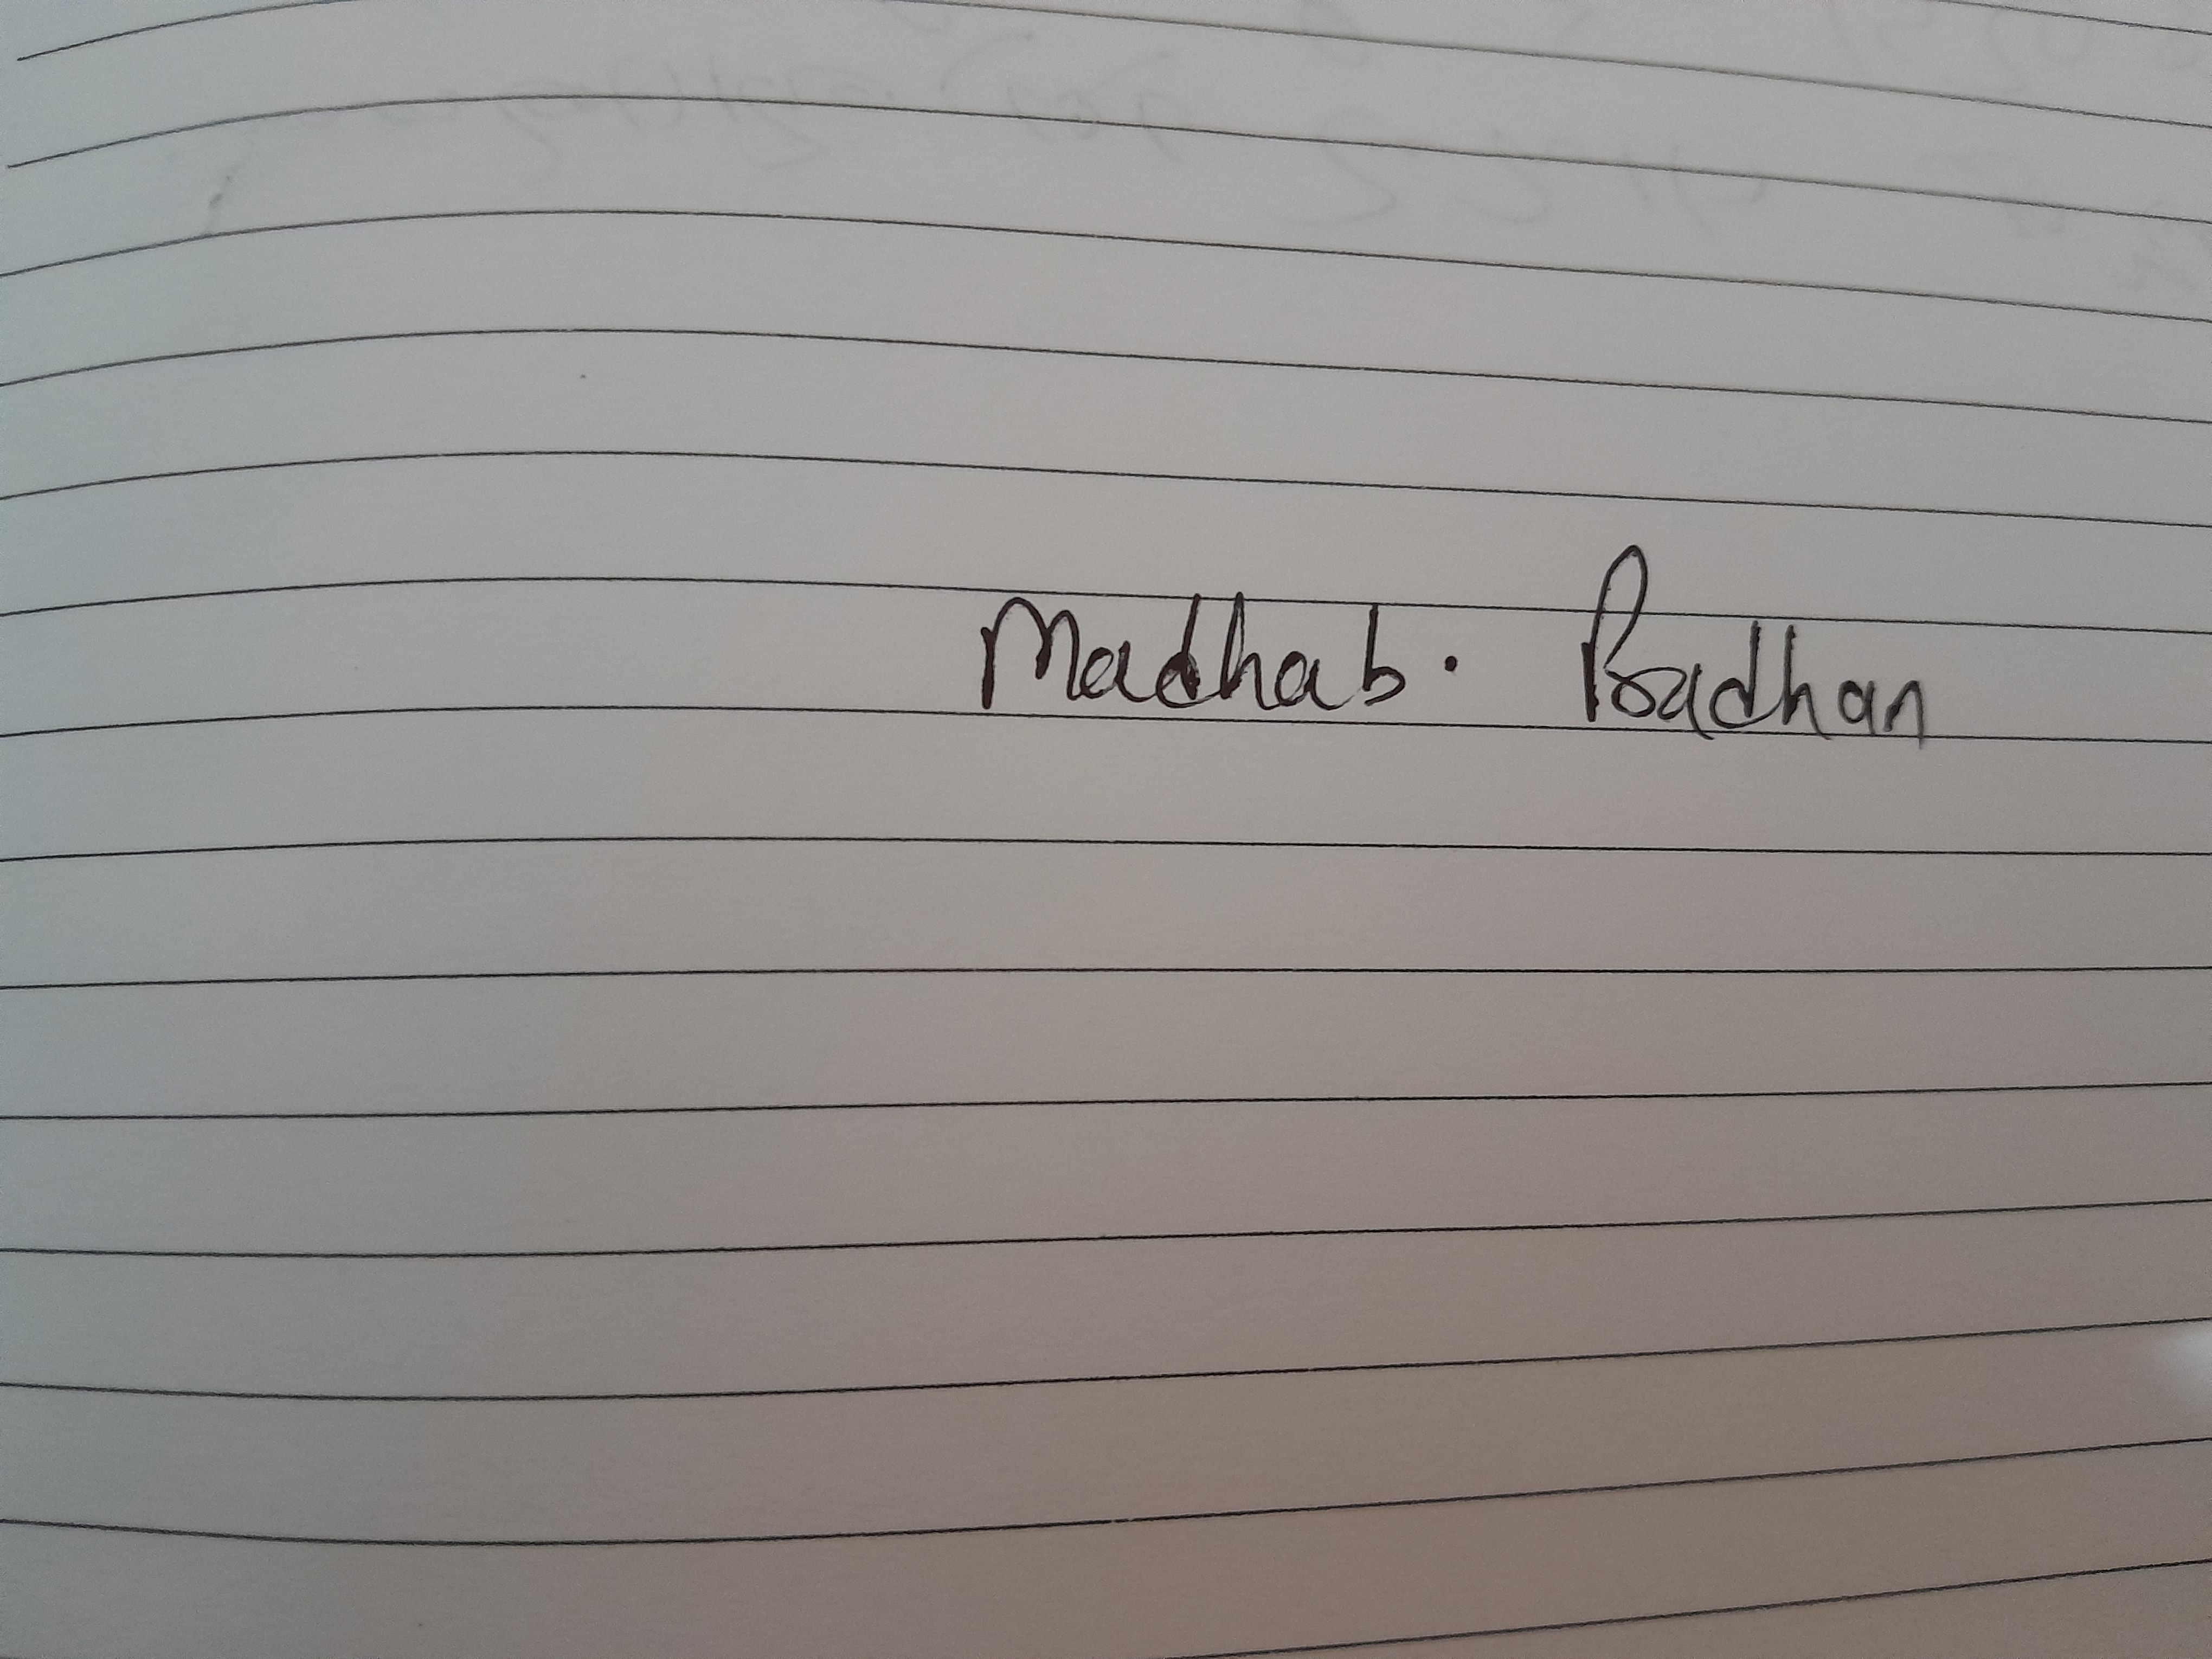 Madhab. Pradhan